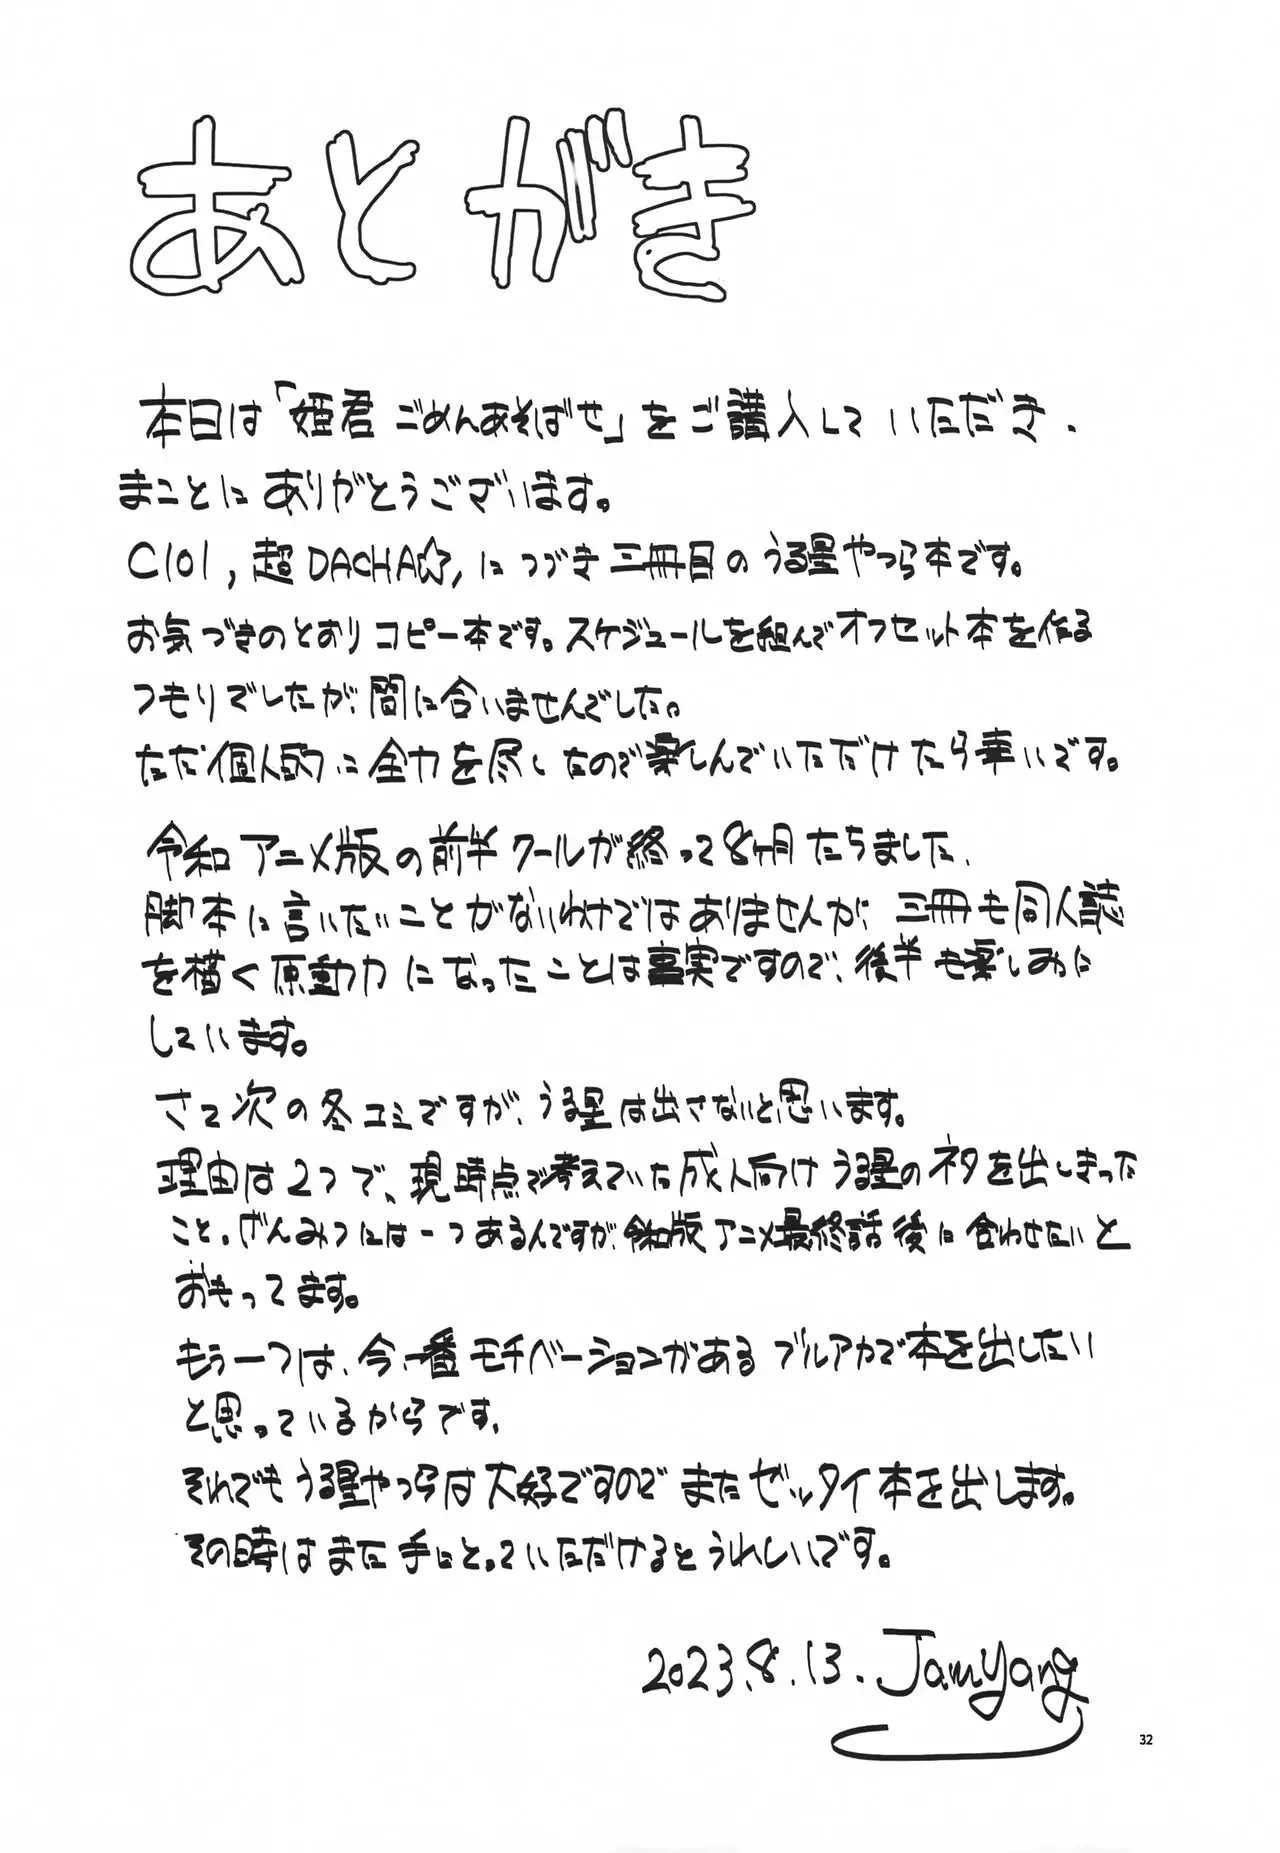 あとがき
本日は「姫君ごめんあそばせ」をご購入していただき、
まことにありがとうございます。
C101,超DACHA☆,につづき三冊目のうる星やつら本です。
お気づきのとおりコピー本です。スケジュールを組んでオフセット本を作る
つもりでしたが、間に合いませんでした。
ただ個人的に全力を尽したので楽しんでいただけたら幸いです。
令和アニメ版の前半クールが終って8ヶ月たちました、
脚本に言いたいことがないわけではありませんが、三冊も同人誌
を描く原動力になったことは事実ですので、後半も楽しみに
しています。
さて次の冬コミですが、うる星は出さないと思います。
理由は2つで、現時点で考えていた成人向けうる星のネタを出しきった
こと。げんみつには一つあるんですが、令和版アニメ最終話後に合わせたいと
おもってます。
もう一つは、今、一番モチベーションがあるブルアカで本を出したい
と思っているからです、
それでもうる星やつらは大好ですのでまたゼッタイ本を出します。
その時はまた手にとっていただけるとうれしいです。
2023.8.13. JamYang
32